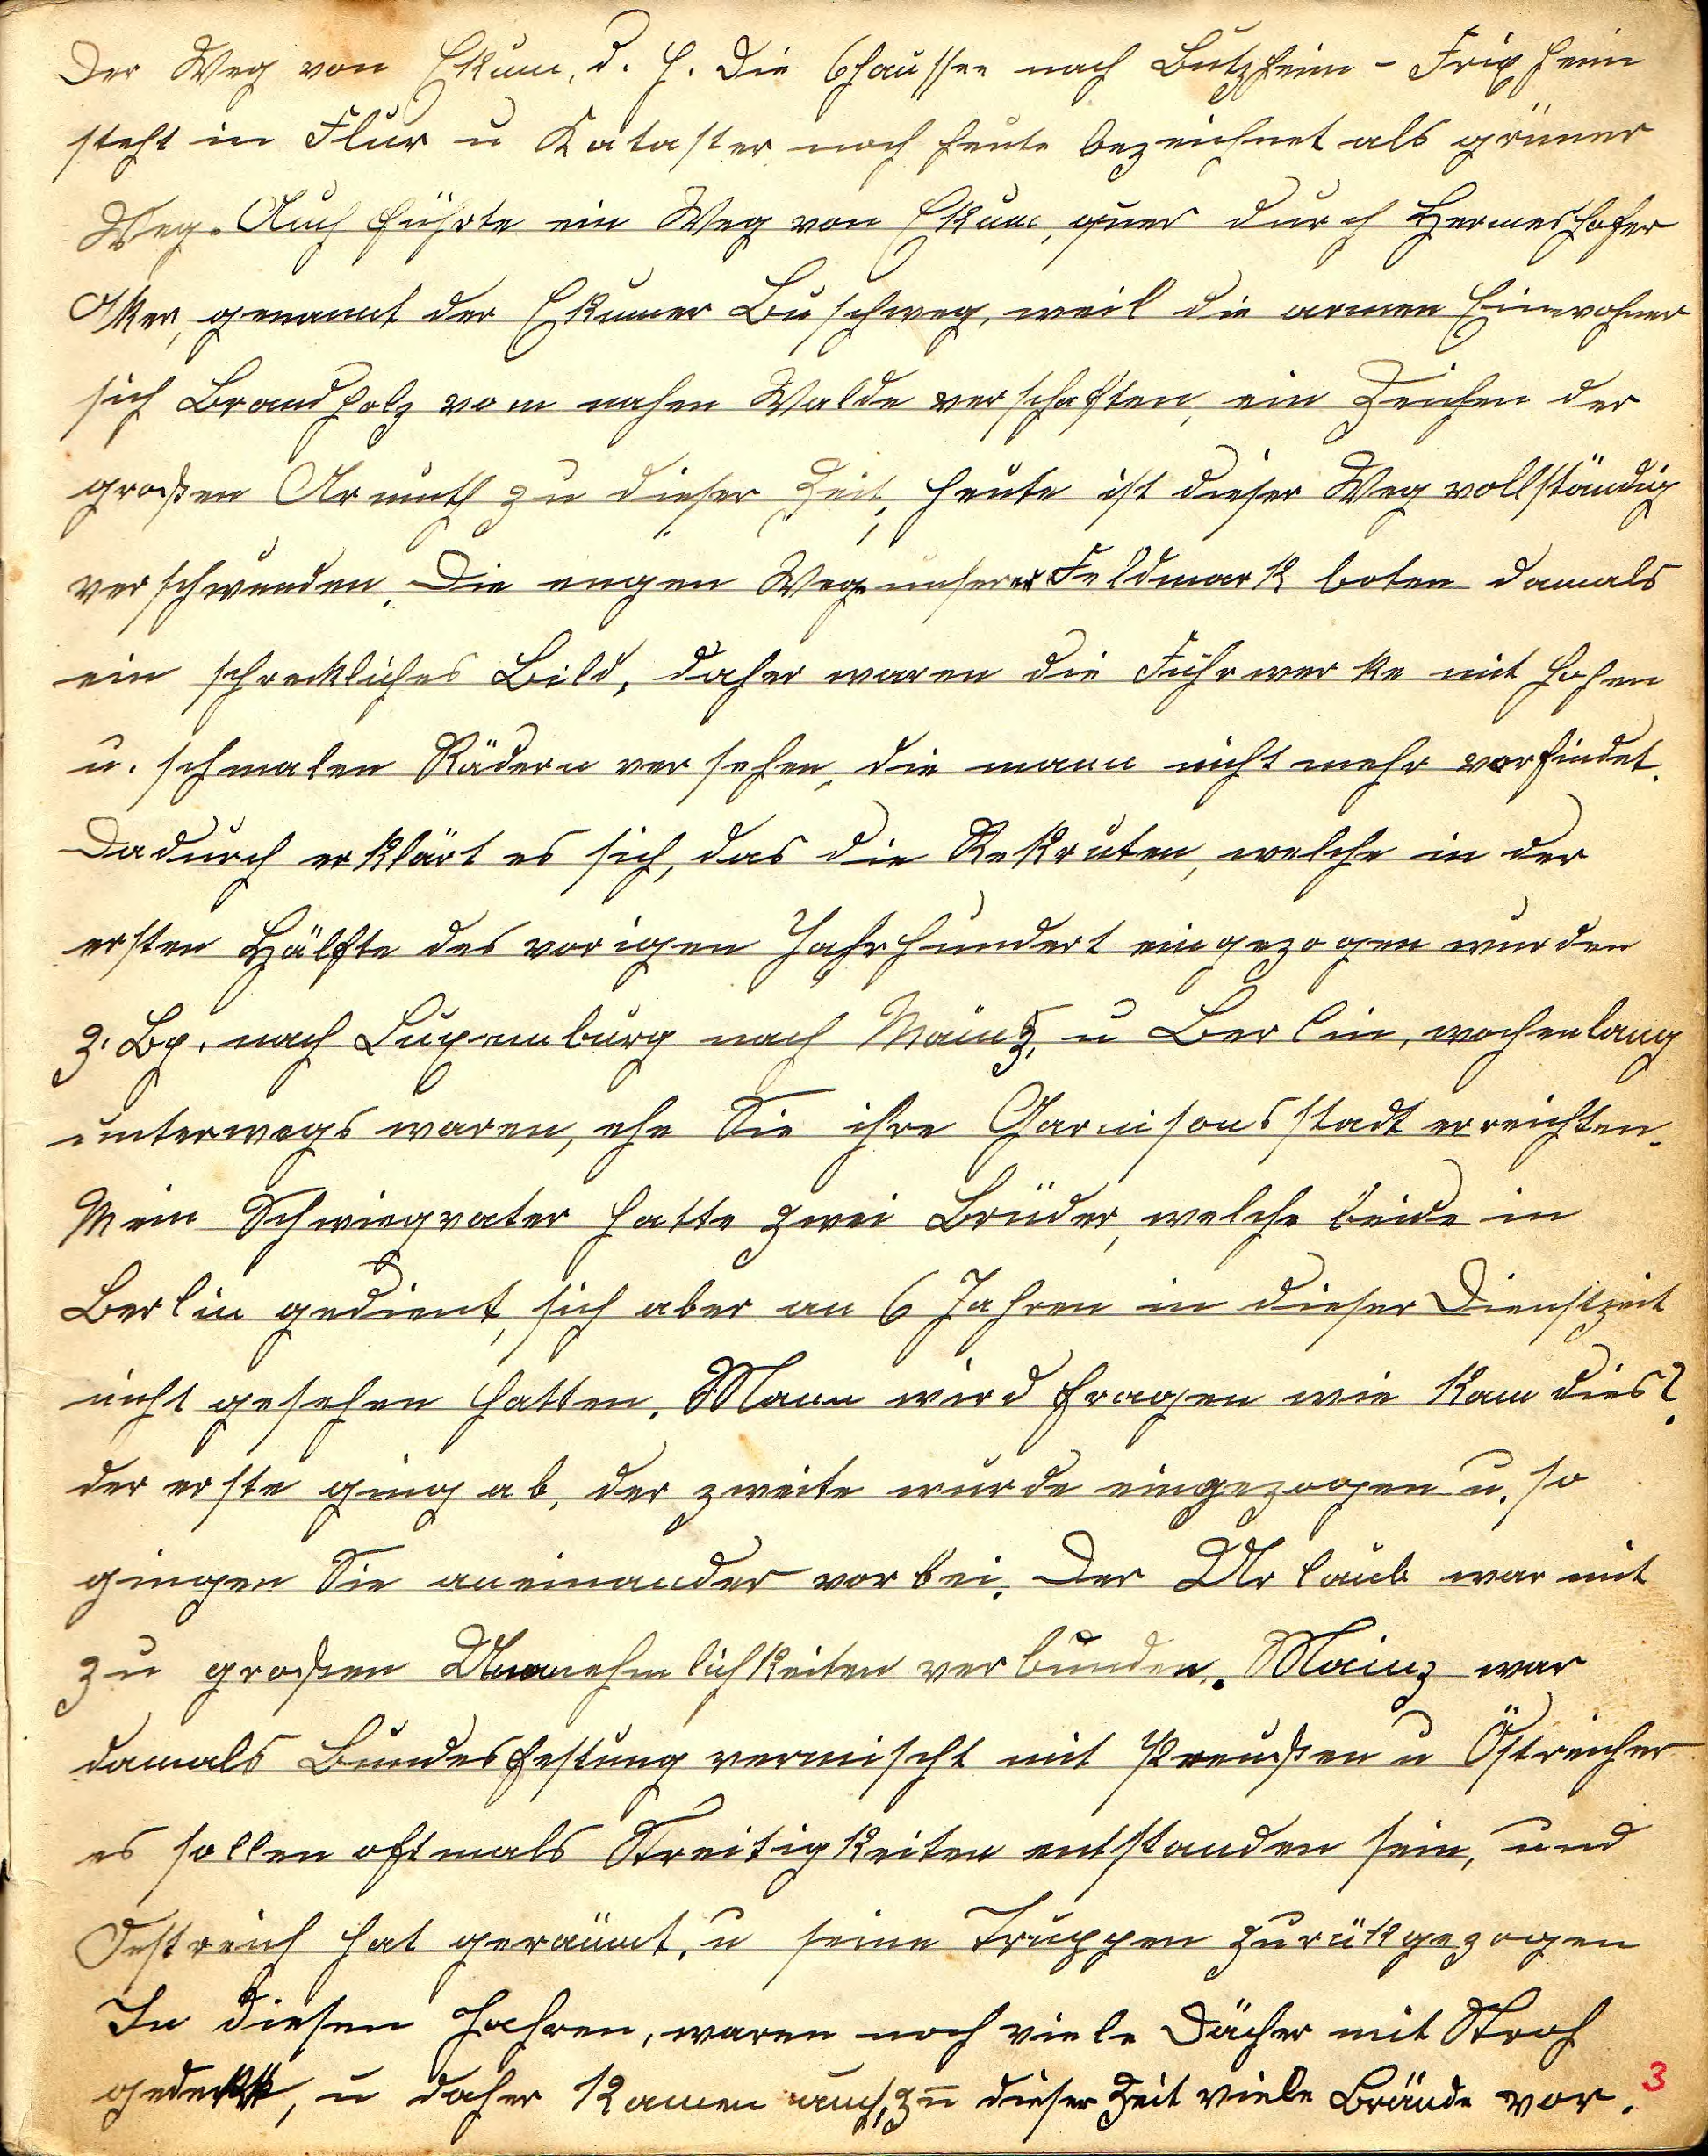 Der Weg von Ekum, d. h. Die Chaussee nach Butzheim - Frixheim
steht in Flur u Kataster noch heute bezeichnet als grüner
Weg. Auch führte ein Weg von Ekum, quer durch Hermeshofer
Aker, genannt der Ekumer Buschweg, weil die armen Einwohner
sich Brandholz vom nahen Walde verschafften, ein Zeichen der
großen Armuth zu dieser Zeit, heute ist dieser Weg vollständig
verschwunden. Die engen Wege unserer Feldmark boten damals
ein schreckliches Bild, daher waren die Fuhrwerke mit hohen
u. schmalen Rädern versehen, die mann nicht mehr vorfindet.
Dadurch erklärt es sich, das die Rekruten, welche in der
ersten Hälfte des vorigen Jahrhundert eingezogen wurden
z. Bp. nach Luxemburg nach Mainz, u Berlin, wochenlang
unterwegs waren, ehe Sie ihre Garnisonsstadt erreichten.
Mein Schwiegvater hatte zwei Brüder, welche beide in
Berlin gedient, sich aber an 6 Jahren in dieser Dienstzeit
nicht gesehen hatten. Mann wird fragen wie kam dies?
der erste ging ab, der zweite wurde eingezogen u. so
gingen Sie aneinander vorbei. Der Urlaub war mit
zu großen Unannehmlichkeiten verbunden. Mainz war
damals Bundesfestung vermischt mit Preußen u Östreicher
es sollen oftmals Streitigkeiten entstanden sein, und
Oestreich hat geräumt, u seine Truppen zurükgezogen
In diesen Jahren, waren noch viele Dächer mit Stroh
gedeckt, u daher kamen auch zu dieser Zeit viele Brände vor.
3